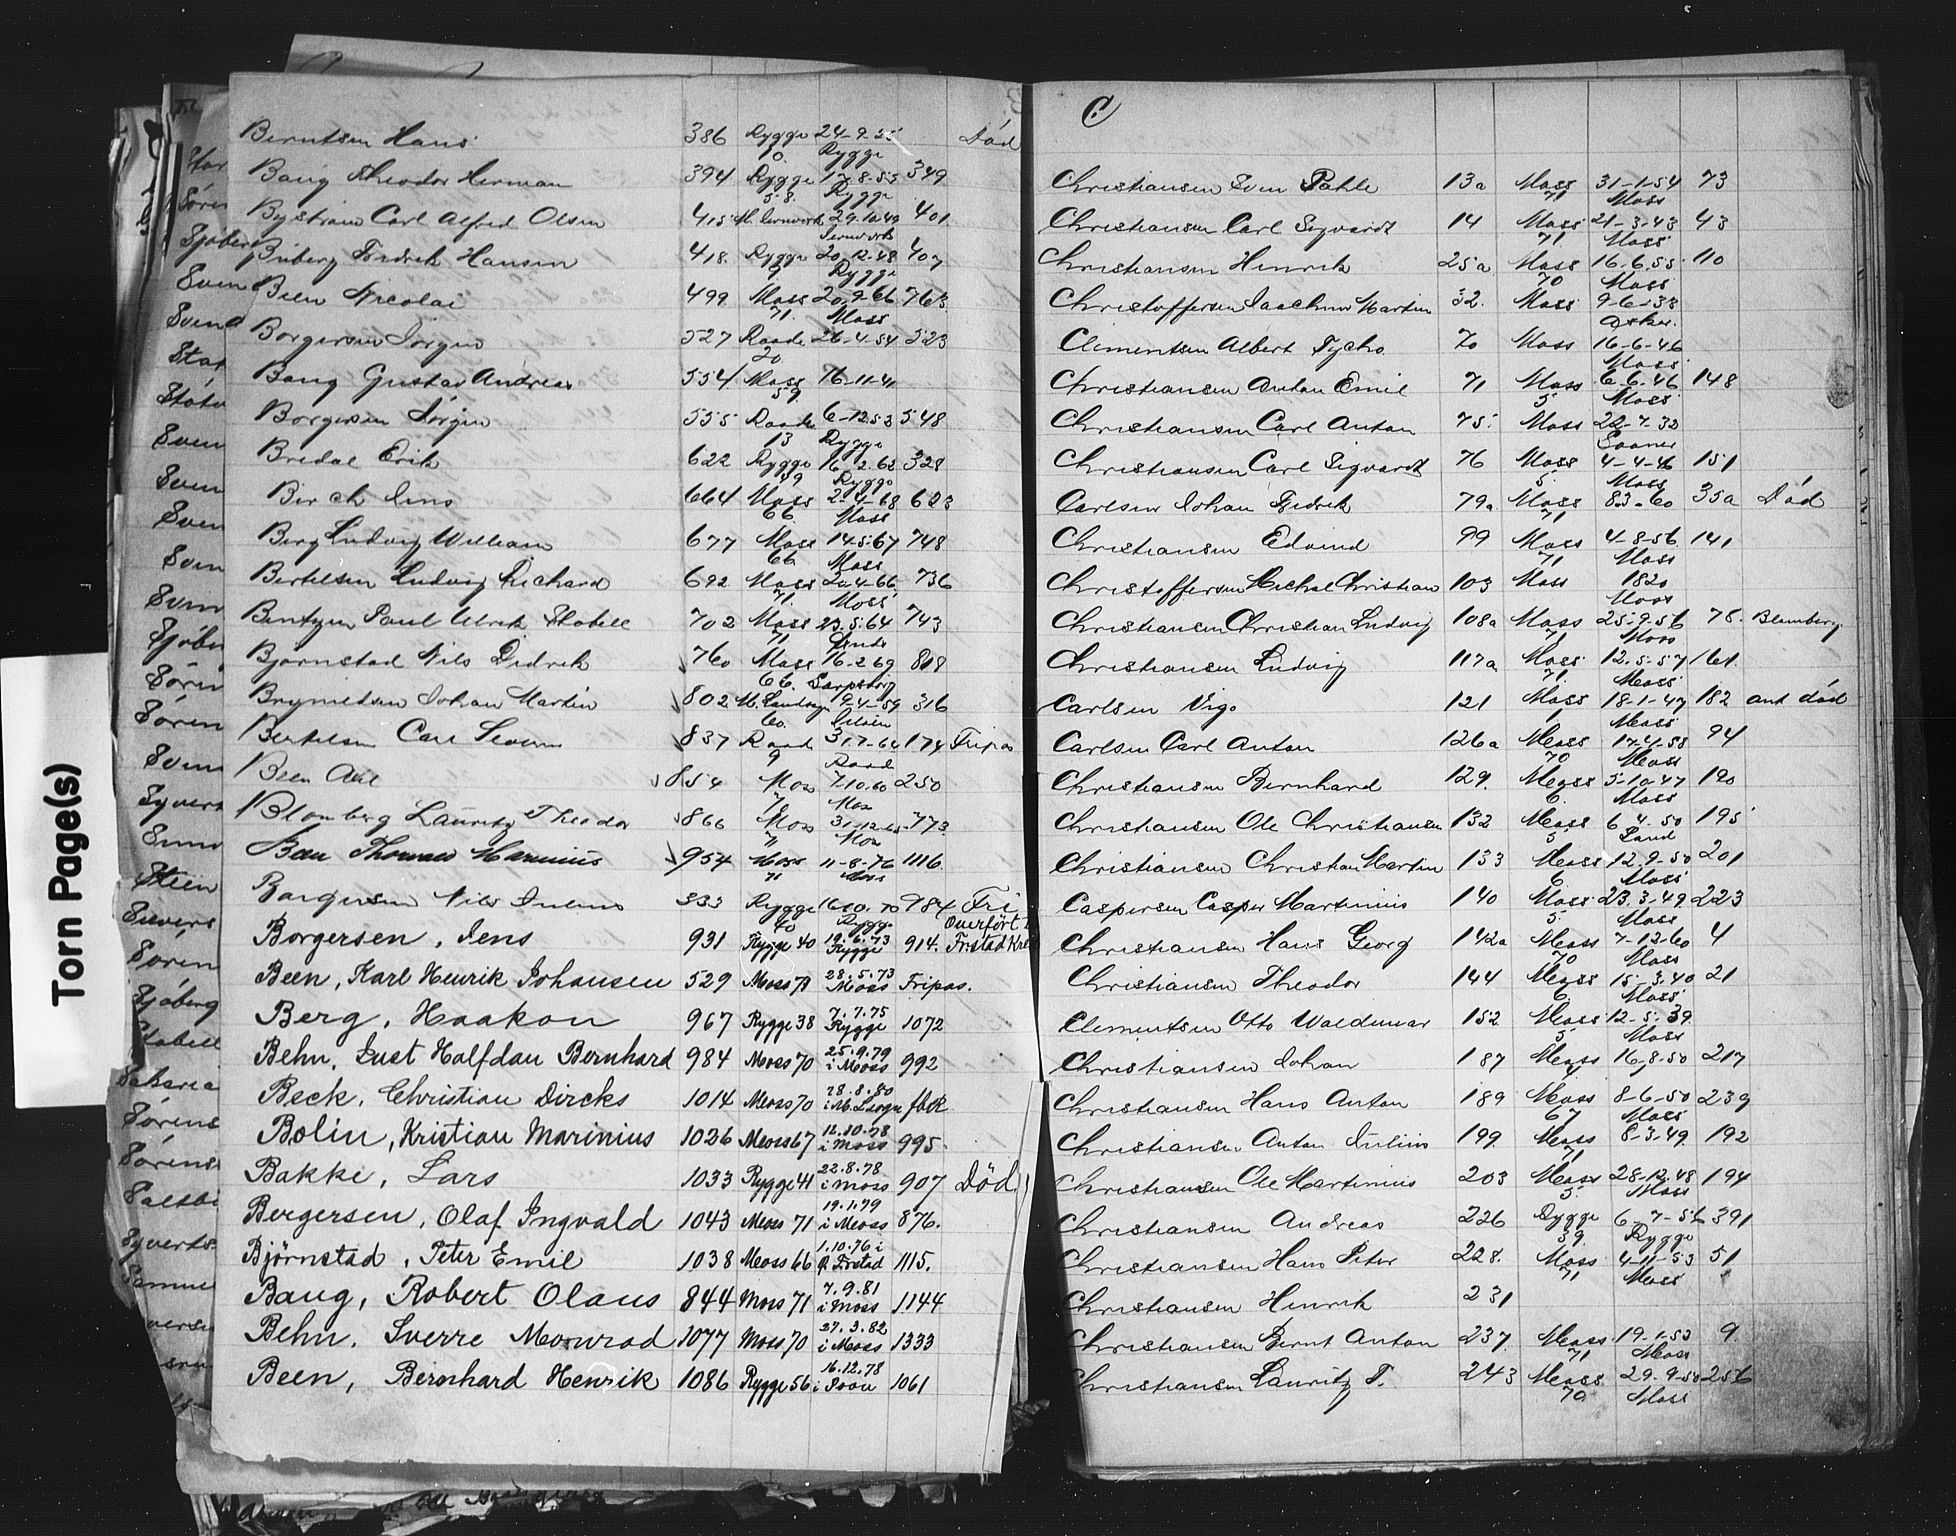 Torn Page(s)
Berntsen Hans 386 Rygge 24-9-25 Død
0. Rygge
Bang Theodor Herman 394 Rygge 17-8-53 349
58. Rygge
Byström Carl Alfred Olsen 415 M. Jernverk 29-10-49 401
Jernverk
Friberg Fredrik Hansen 418. Rygge 20-12-48 407
Rygge
Bien Nicolai 499 Moss 20-9-66 763
71. Moss
Borgersen Jørgen 527 Raade 26-4-54 523
20
Bang Gustav Andreas 554 Moss 16-11-41
59.
Borgersen Jørgen 555 Raade 6-12-53 548
13 Rygge
Bredal Erik 622 Rygge 16-2-62 328
Rygge
Birch Jens 664 Moss 2-4-68 623
66. Moss
Berg Ludvig William 677 Moss 14-5-67 748
66 Moss
Bertelsen Ludvig Richard 692 Moss 20-4-66 736
71. Moss
Bentzen Paul Ulrik Stabell 702 Moss 23-5-64 743
71
Bjørnstad Nils Didrik 760 Moss 16-2-69 818
66. Sarpsborg
Brynildsen Johan Martin 802 M. Landsogn 9-4-59 316
60.
Bertelsen Carl Severin 837 Raade 31-7-64 174 Fripas
9 Raade
Been Axel 854 Moss 7-10-60 250
70 Moss
Blomberg Lauritz Theodor 866 Moss 31-12-65 773
71 Moss
Been Thomas Marinius 954 Moss 11-8-76 1116.
71 Moss
Borgersen Nils Julius 333 Rygge 16-10-70 984 Fri
40 Rygge Overført t
Borgersen, Jens 931 Rygge 40 19.6.73 Rygge 914. Frstad Kr
Been, Karl Henrik Johansen 529 Moss 71 28.5.73 Moss Fripas.
Berg, Haakon 967 Rygge 38 7.7.75 Rygge 1072
Behn, Just Halfdan Bernhard 984 Moss 70 25.9.79 i Moss 992
Beck, Christian Dircks 1014 Moss 70 28.8.80 i M. Lsogn fblR
Bolin, Kristian Marinius 1026 Moss 67 12.10.78 i Moss 995.
Bakke, Lars 1033 Rygge 41 22.8.78 i Moss 907 Død.
Bergersen, Olaf Ingvald 1043 Moss 71 19.1.79 i Moss 876.
Bjørnstad, Peter Emil 1038 Moss 66 1.10.76 i Frstad 1115.
Bang, Robert Olaus 844 Moss 71 7.9.81 i Moss 1144
Behn, Sverre Monrad 1077 Moss 70 27.3.82 i Moss 1333
Been, Bernhard Henrik 1086 Rygge 56 16.12.78 i Soon 1061
C.
Christiansen Sven Pahle 13a Moss 31-1-54 73
71 Moss
Christiansen Carl Sigvardt 14 Moss 21-3-43 43
71 Moss
Christiansen Henrik 25a Moss 16-6-55 110
70 Moss
Christoffersen Joachim Martin 32. Moss 9-6-33
Asker.
Clementsen Albert Tycho 70 Moss 16-6-46
Moss
Christiansen Anton Emil 71 Moss 6-6-46 148
5 Moss
Christiansen Carl Anton 75. Moss 22-7-32
Christiansen Carl Sigvardt 76 Moss 4-4-46 151
5. Moss
Carlsen Johan Fredrik 79a Moss 8-3-60 35a Død
71
Christiansen Edvind 99 Moss 4-8-56 141
71 Moss
Christoffersen Michal Christian 103 Moss 1820
Moss
Christiansen Christian Ludvig 108a Moss 25-9-56 78. Blomberg.
71 Moss
Christiansen Ludvig 117a Moss 12-5-57 161
71. Moss
Carlsen Vigo 121 Moss 18-1-47 182 ant død
1 Moss
Carlsen Carl Anton 126a Moss 17-4-58 94
70 Moss
Christiansen Bernhard 129. Moss 5-10-47 190
6. Moss
Christiansen Ole Christiansen 132 Moss 6-4-50 195
5 Land
Christiansen Christian Martin 133 Moss 12-9-50 201
6 Moss
Caspersen Casper Martinius 140 Moss 23-3-49 223
5. Moss
Christiansen Hans Georg 142a Moss 7-12-60 4
70 Moss
Christiansen Theodor 144 Moss 15-3-40 21
6 Moss
Clementsen Otto Waldemar 152 Moss 12-5-39
5 Moss
Christiansen Johan 187 Moss 16-8-50 217
Christiansen Hans Anton 189 Moss 8-6-50 239
67 Moss
Christiansen Anton Julius 199. Moss 8-3-49. 192
71
Christiansen Ole Martinius 203 Moss 28-12-48 194
5. Moss
Christiansen Andreas 226 Rygge 6-7-56 391
39. Rygge
Christiansen Hans Peter 228. Moss 4-11-53 51
71 Moss
Christiansen Henrik 231
Christiansen Bernt Anton 237 Moss 19-1-53 9
71 Moss
Christiansen Lauritz T. 243 Moss 29-9-50 256
70 Moss